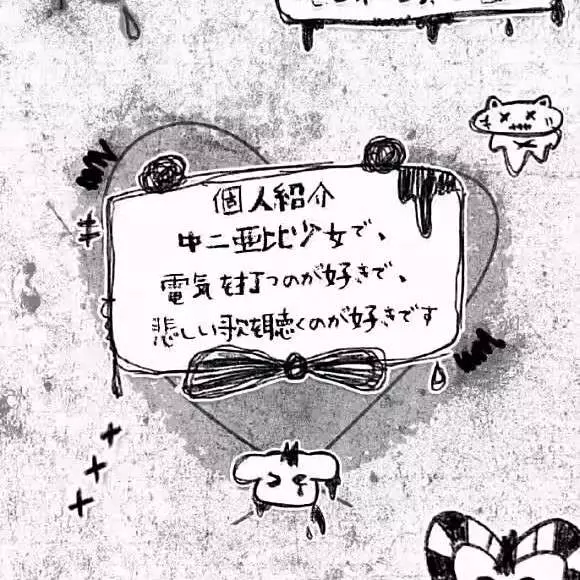 個人紹介
中二亜比少女で、
電気を打つのが好きで、
悲しい歌を聴くのが好きです